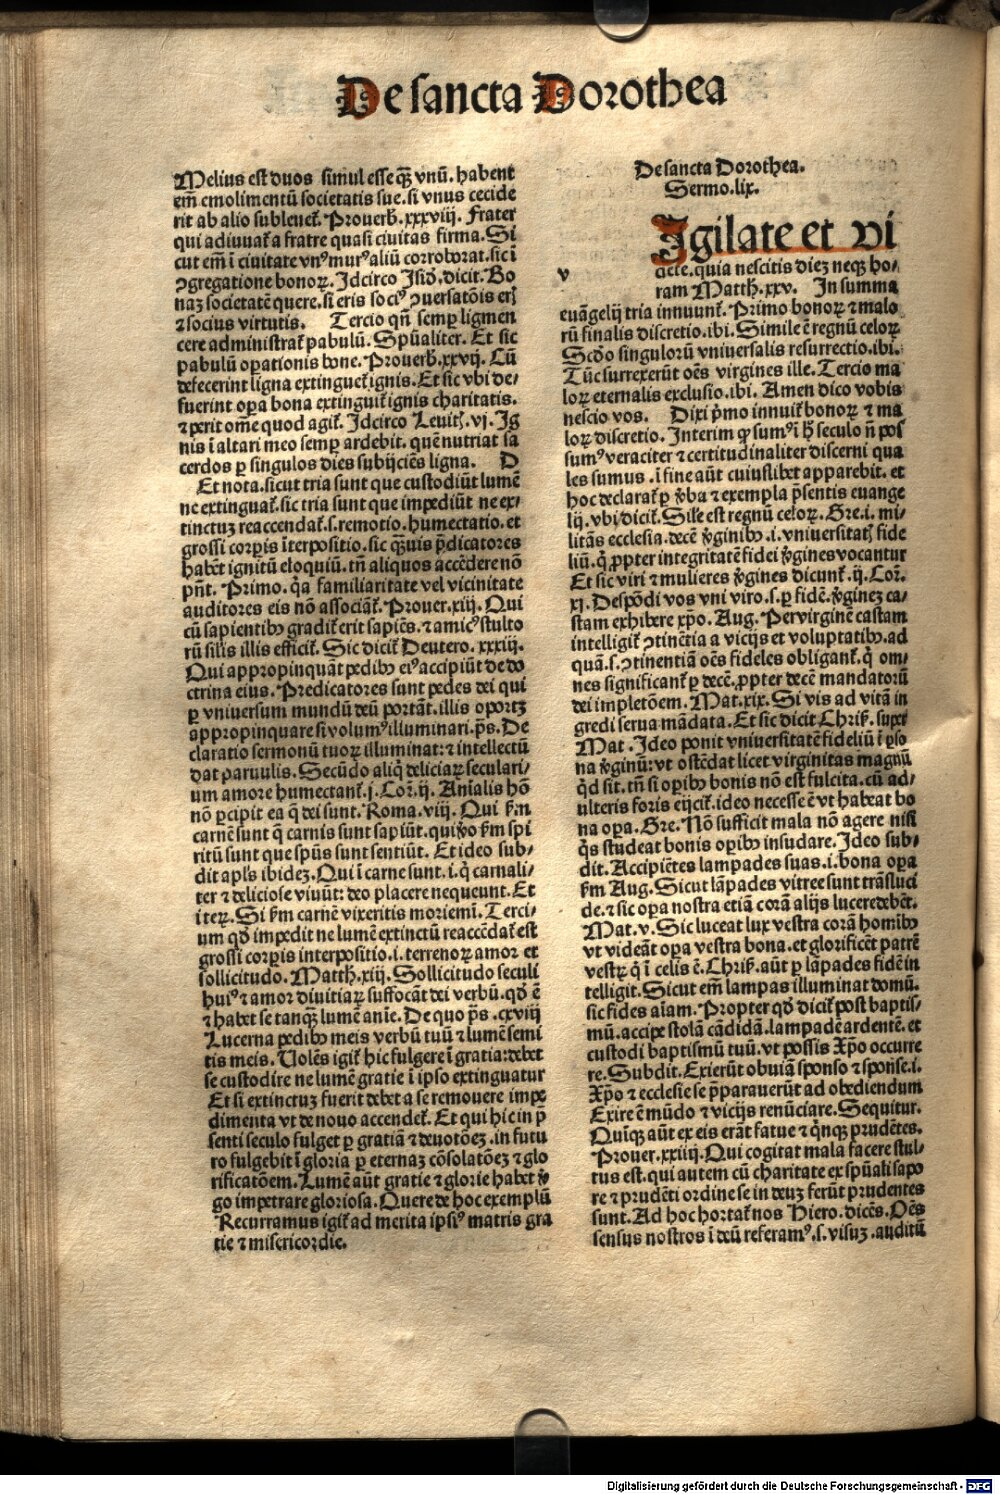 De sancta Dorothea
Melius est duos simul esse qȝ̄ vnū. habent
em̄ emolimentū societatis sue. si vnus cecide
rit ab alio subleuet̄. Prouerb̄. xxxviij. Frater
qui adiuuat̄ a fratre quasi ciuitas firma. Si
cut em̄ ī ciuitate vnꝰ murꝰ aliū corroborat. sic ī
ꝯgregatione bonoꝝ. Idcirco Isid̄. dicit. Bo
naꝫ societatē quere. si eris sociꝰ ꝯuersatōis erꝭ
⁊ socius virtutis. Tercio qn̄ semꝑ ligmen
cere administrat̄ pabulū. Spūaliter. Et sic
pabulū oꝑationis bone. Prouerb̄. xxvij. Cū
defecerint ligna extinguet̄ ignis. Et sic vbi de⸗
fuerint oꝑa bona extinguit̄ ignis charitatis.
⁊ perit om̄e quod agit̄. Idcirco Leuit̄. vj. Ig
nis ī altari meo semꝑ ardebit. quē nutriat sa
cerdos ꝑ singulos dies subijciēs ligna. D
Et nota. sicut tria sunt que custodiūt lumē
ne extinguat̄. sic tria sunt que impediūt ne ex⸗
tinctuꝫ reaccendat̄. s. remotio. humectatio. et
grossi corꝑis īterpositio. sic qȝ̄uis p̄dicatores
habēt ignitū eloquiū. tn̄ aliquos accēdere nō
pn̄t. Primo. q̄a familiaritate vel vicinitate
auditores eis nō associāt̄. Prouer. xiij. Qui
cū sapientibꝫ gradit̄ erit sapiēs. ⁊ amicꝰ stulto
rū silis illis efficit̄. Sic dicit̄ Deutero. xxxiij.
Qui appropinquāt pedibꝫ eiꝰ accipiūt de do
ctrina eius. Predicatores sunt pedes dei qui
ꝑ vniuersum mundū deū portāt. illis oportꝫ
appropinquare si volumꝰ illuminari. p̄s. De
claratio sermonū tuoꝝ illuminat: ⁊ intellectū
dat paruulis. Secūdo aliq̄ deliciaꝝ seculari⸗
um amore humectant̄. j. Cor̄. ij. Anialis hō
nō ꝑcipit ea q̄ dei sunt. Roma. viij. Qui ẜm
carnē sunt q̄ carnis sunt sapiūt. qui ꝟo ẜm spi
ritū sunt que spūs sunt sentiūt. Et ideo sub⸗
dit apl̄s ibideꝫ. Qui ī carne sunt. i. q̄ carnali⸗
ter ⁊ deliciose viuūt: deo placere nequeunt. Et
iteꝝ. Si ẜm carnē vixeritis moriemī. Terci⸗
um qd̄ impedit ne lumē extinctū reaccēdat̄ est
grossi corꝑis interpositio. i. terrenoꝝ amor et
sollicitudo. Matth̄. xiij. Sollicitudo seculi
huiꝰ ⁊ amor diuitiaꝝ suffocāt dei verbū. qd̄ ē
⁊ habet se tanqȝ lumē anīe. De quo p̄s. cxviij
Lucerna pedibꝫ meis verbū tuū ⁊ lumē semi
tis meis. Uolēs igit̄ hic fulgere ī gratia: debet
se custodire ne lumē gratie ī ipso extinguatur
Et si extinctuꝫ fuerit debet a se remouere impe
dimenta vt de nouo accendet̄. Et qui hic in p̄
senti seculo fulget ꝑ gratiā ⁊ deuotōeꝫ. in futu
ro fulgebit ī gloria ꝑ eternaꝫ cōsolatōeꝫ ⁊ glo
rificatōem. Lumē aūt gratie ⁊ glorie habet ꝟ
go impetrare gloriosa. Quere de hoc exemplū
Recurramus igit̄ ad merita ipsiꝰ matris gra
tie ⁊ misericordie.
De sancta Dorothea.
Sermo. lix.
v
Igilate et vi
dete. quia nescitis dieꝫ neqꝫ ho⸗
ram Matth̄. xxv. In summa
euāgelij tria innuunt̄. Primo bonoꝝ ⁊ malo
rū finalis discretio. ibi. Simile ē regnū celoꝝ
Scd̄o singulorū vniuersalis resurrectio. ibi.
Tūc surrexerūt oēs virgines ille. Tercio ma
loꝝ eternalis exclusio. ibi. Amen dico vobis
nescio vos. Dixi p̄mo innuit̄ bonoꝝ ⁊ ma
loꝝ discretio. Interim ꝙ sumꝰ ī h̄ seculo n̄ pos
sumꝰ veraciter ⁊ certitudinaliter discerni qua
les sumus. ī fine aūt cuiuslibet apparebit. et
hoc declarat̄ ꝑ ꝟba ⁊ exempla p̄sentis euange
lij. vbi dicit̄. Sil̄e est regnū celoꝝ. Gre. i. mi⸗
litās ecclesia. decē ꝟginibꝫ. i. vniuersitatꝭ fide
liū. q̄ ꝓpter integritatē fidei ꝟgines vocantur
Et sic viri ⁊ mulieres ꝟgines dicunt̄. ij. Cor̄.
xj. Despōdi vos vni viro. s. ꝑ fidē. ꝟgineꝫ ca⸗
stam exhibere xp̄o. Aug. Per virginē castam
intelligit̄ ꝯtinētia a vicijs et voluptatibꝫ. ad
quā. s. ꝯtinentiā oēs fideles obligant̄. q̄ om⸗
nes significant̄ ꝑ decē. ꝓpter decē mandatorū
dei impletōem. Mat. xix. Si vis ad vitā in
gredi serua mādata. Et sic dicit Chriſ. super
Mat. Ideo ponit vniuersitatē fideliū ī ꝑso
na ꝟginū: vt ostēdat licet virginitas magnū
qd̄ sit. tn̄ si oꝑibꝫ bonis nō est fulcita. cū ad⸗
ulteris foris eijcit̄. ideo necesse ē vt habeat bo
na oꝑa. Gre. Nō sufficit mala nō agere nisi
q̄s studeat bonis oꝑibꝫ insudare. Ideo sub⸗
dit. Accipiētes lampades suas. i. bona oꝑa
ẜm Aug. Sicut lāpades vitree sunt trāsluci
de. ⁊ sic oꝑa nostra etiā corā alijs lucere debēt.
Mat. v. Sic luceat lux vestra corā homībꝫ
vt videāt oꝑa vestra bona. et glorificēt patrē
vestꝝ q̄ ī celis ē. Chriſ. aūt ꝑ lāpades fidē in
telligit. Sicut em̄ lampas illuminat domū.
sic fides aīam. Propter qd̄ dicit̄ post baptis⸗
mū. accipe stolā cādidā. lampadē ardentē. et
custodi baptismū tuū. vt possis Xp̄o occurre
re. Subdit. Exierūt obuiā sponso ⁊ sponse. i.
Xp̄o ⁊ ecclesie se p̄parauerūt ad obediendum
Exire ē mūdo ⁊ vicijs renūciare. Sequitur.
Quīqꝫ aūt ex eis erāt fatue ⁊ q̄nqꝫ prudētes.
Prouer. xxiiij. Qui cogitat mala facere stul⸗
tus est. qui autem cū charitate ex spūali sapo
re ⁊ prudēti ordine se in deuꝫ ferūt prudentes
sunt. Ad hoc hortat̄ nos Hiero. dicēs. Oēs
sensus nostros ī deū referamꝰ. s. visuꝫ. auditū
Digitalisierung gefördert durch die Deutsche Forschungsgemeinschaft - DFG